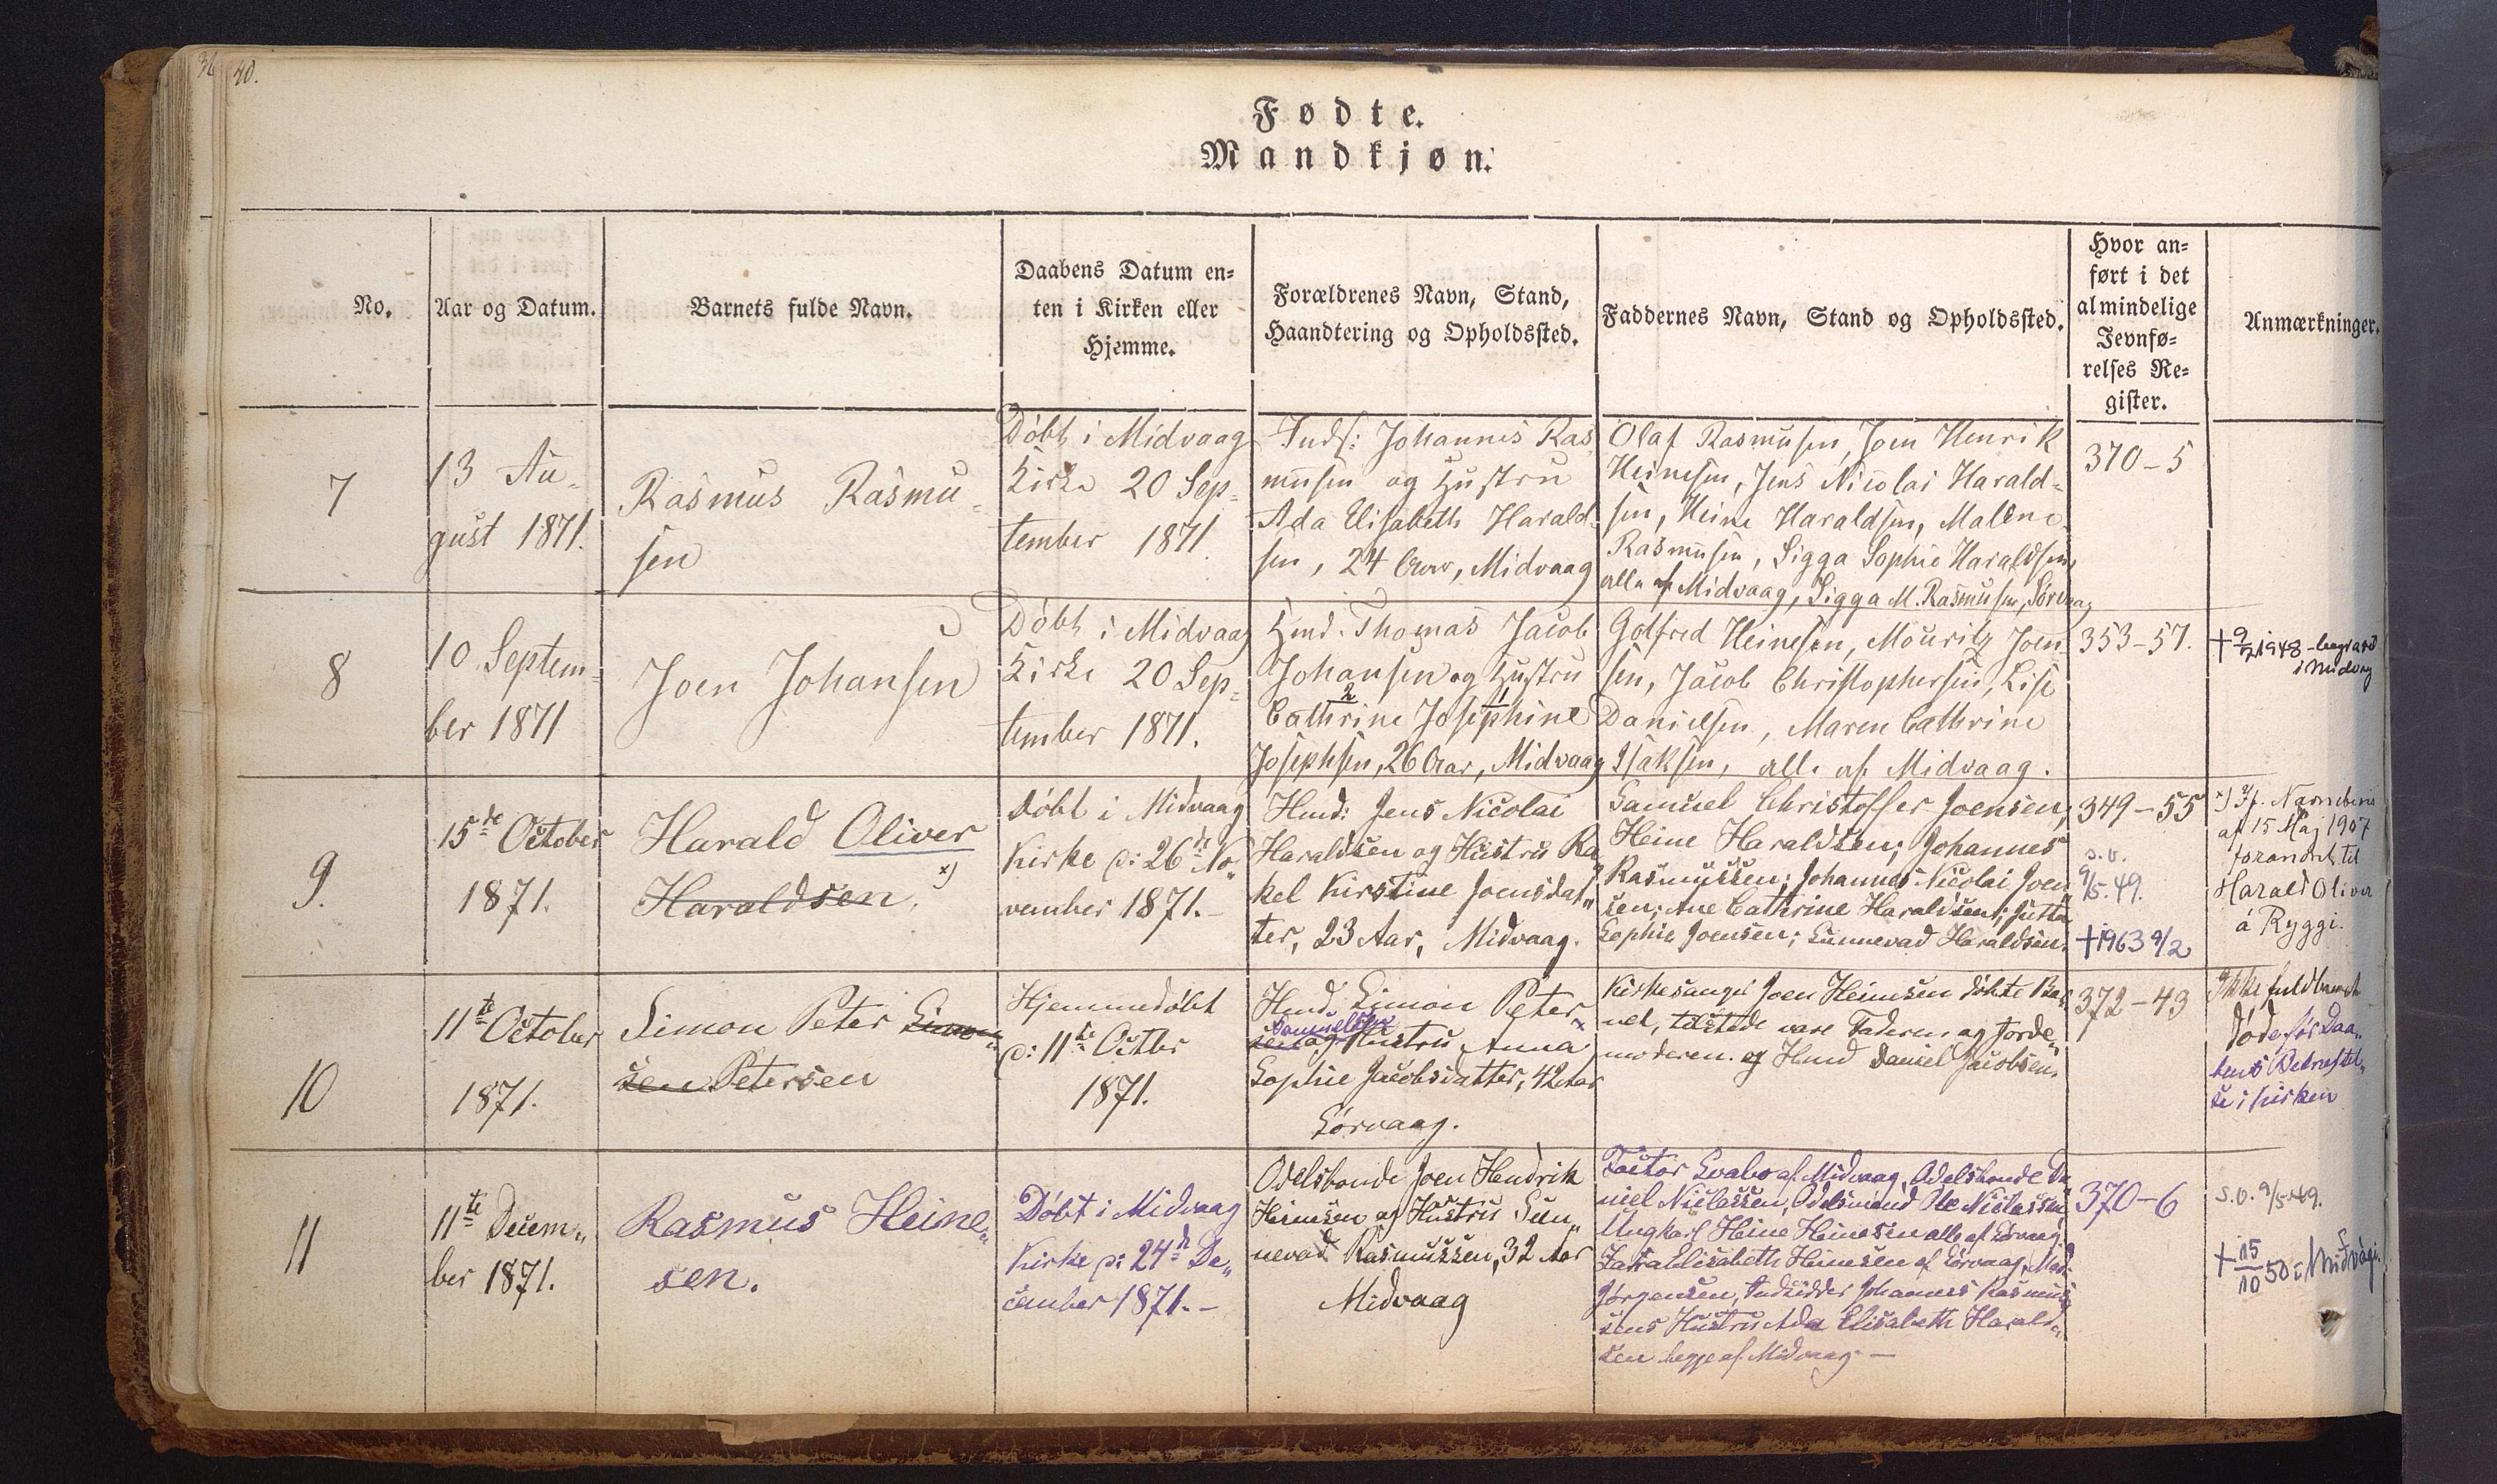 40.
Fødte.
Mandkjøn.
No.
Aar og Datum.
Barnets fulde Navn.
Daabens Datum en=
ten i Kirken eller
Hjemme.
Forældrenes Navn, Stand,
Haandtering og Opholdssted.
Faddernes Navn, Stand og Opholdssted.
Hvor an=
ført i det
almindelige
Jevnfø=
relses Re=
gister.
Anmærkninger.
7
13 Au-
gust 1871.
Rasmus Rasmu-
sen
Döbt i Midvaag
Kirke 20 Sep-
tember 1871.
Inds: Johannes Ras
musen og Hustru
Ada Elisabeth Harald-
sen, 24 Aar, Midvaag
Olaf Rasmusen, Joen Henrik
Heinesen, Jens Nicolai Harald-
sen, Heine Haraldsen, Malene
Rasmusen, Sigga Sophie Haraldsen,
alle af Midvaag, Sigga M. Rasmusen, Sörvaag
370-5
8
10 Septem-
ber 1871
Joen Johansen
Döbt i Midvaag
Kirke 20 Sep-
tember 1871.
Hmd. Thomas Jacob
Johansen og Hustru
2 1
Cathrine Josephine
Josephsen, 26 Aar, Midvaag
Golfred Heinesen, Mouritz Joen-
sen, Jacob Christophersen, Lise
Danielsen, Maren Cathrine
Isaksen, alle af Midvaag.
353-57.
† 9/2 1948 - begravd
i Midvag
9.
15de October
1871.
Harald Oliver
Haraldsen. x)
Döbt i Midvaag
Kirke d: 26de No-
vember 1871.-
Hmd: Jens Nicolai
Haraldsen og Hustru Ra-
kel Kirstine Joensdat-
ter, 23 Aar, Midvaag.
Samuel Christoffer Joensen;
Heine Haraldsen; Johannes
Rasmussen; Johannes Nicolai Joen-
sen; Ane Cathrine Haraldsen; Jutta
Sophie Joensen; Sunnevad Haraldsen.
349-55
s.v.
9/5. 49.
† 1963 9/2
x) If. Navnebevis
af 15 Maj 1907
forandret til
Harald Oliver
á Ryggi.
10
11te October
1871.
Simon Peter Simon-
sen Petersen
Hjemmedöbt
d: 11te Octbr
1871.
Hmd. Simon Peter
Danielsen
sen og Hustru Anna
Sophie Jacobsdatter, 42 Aar
Sörvaag.
Kirkesanger Joen Heinesen döbte Bar-
net, tilstede vare Faderen og Jorde-
moderen og Hmd Daniel Jacobsen.
372-43
Ikke fuldbaaret
döde för Daa-
bens Bekræftel-
se i Kirken
11
11te Decem-
ber 1871.
Rasmus Heine-
sen.
Döbt i Midvaag
Kirke d: 24de De-
cember 1871.-
Odelsbonde Joen Hendrik
Heinesen og Hustru Sun-
nevad Rasmussen, 32 Aar
Midvaag
Factor Svabo af Midvaag, Odelsbonde Da-
niel Niclassen, Odelsmand Ole Niclassen
Ungkarl Heine Heinesen alle af Sörvaag
Elisabeth Heinesen af Sörvaag,
Jörgensen, Indsidder Johannes Rasmus-
sens Hustru Ada Elisabeth Harald-
sen begge af Midvaag -
370-6
s.v. 9/5 49.
† 15/10 50 i Miðvági.